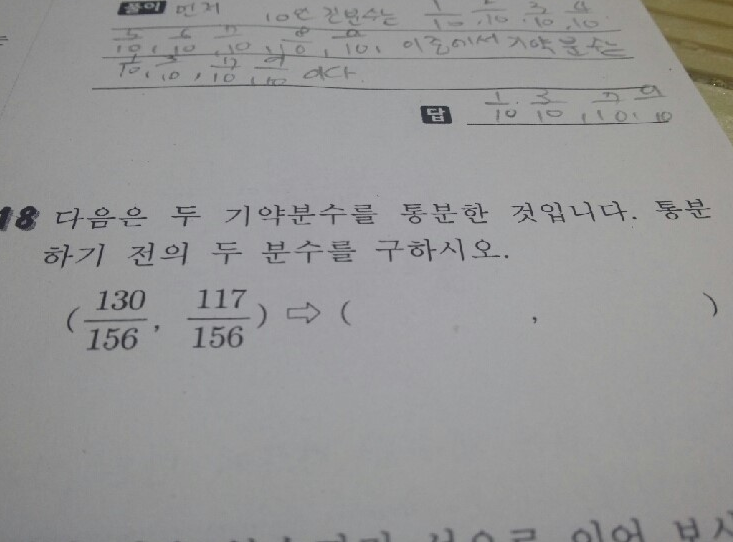 풀이 먼저 10인 진분수는 1/10, 2/10, 3/10, 4/10,
5/10, 6/10, 7/10, 8/10, 9/10, 이중에서 기약분수는
1/10, 3/10, 7/10, 9/10 이다.
답 1/10, 3/10, 7/10, 9/10
18 다음은 두 기약분수를 통분한 것입니다. 통분
하기 전의 두 분수를 구하시오.
(130/156, 117/156) ⇨ ( , )
이어